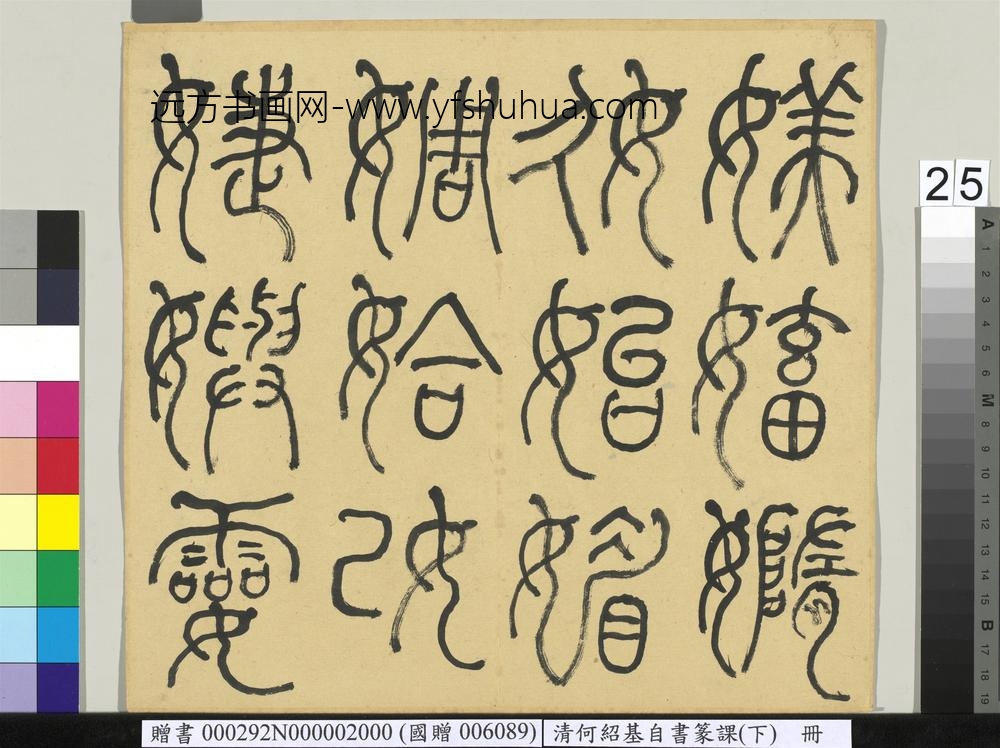 远方书画网-www.yfshuhua.com
媄㜅嫷
始媚
婤姶妀
婕嬩孁
25
A 1 2 3 4 5 6 M 8 9 10 11 12 13 14 15 B 17 18 19
贈書 000292N000002000 (國贈 006089) 清何紹基自書篆課(下) 冊